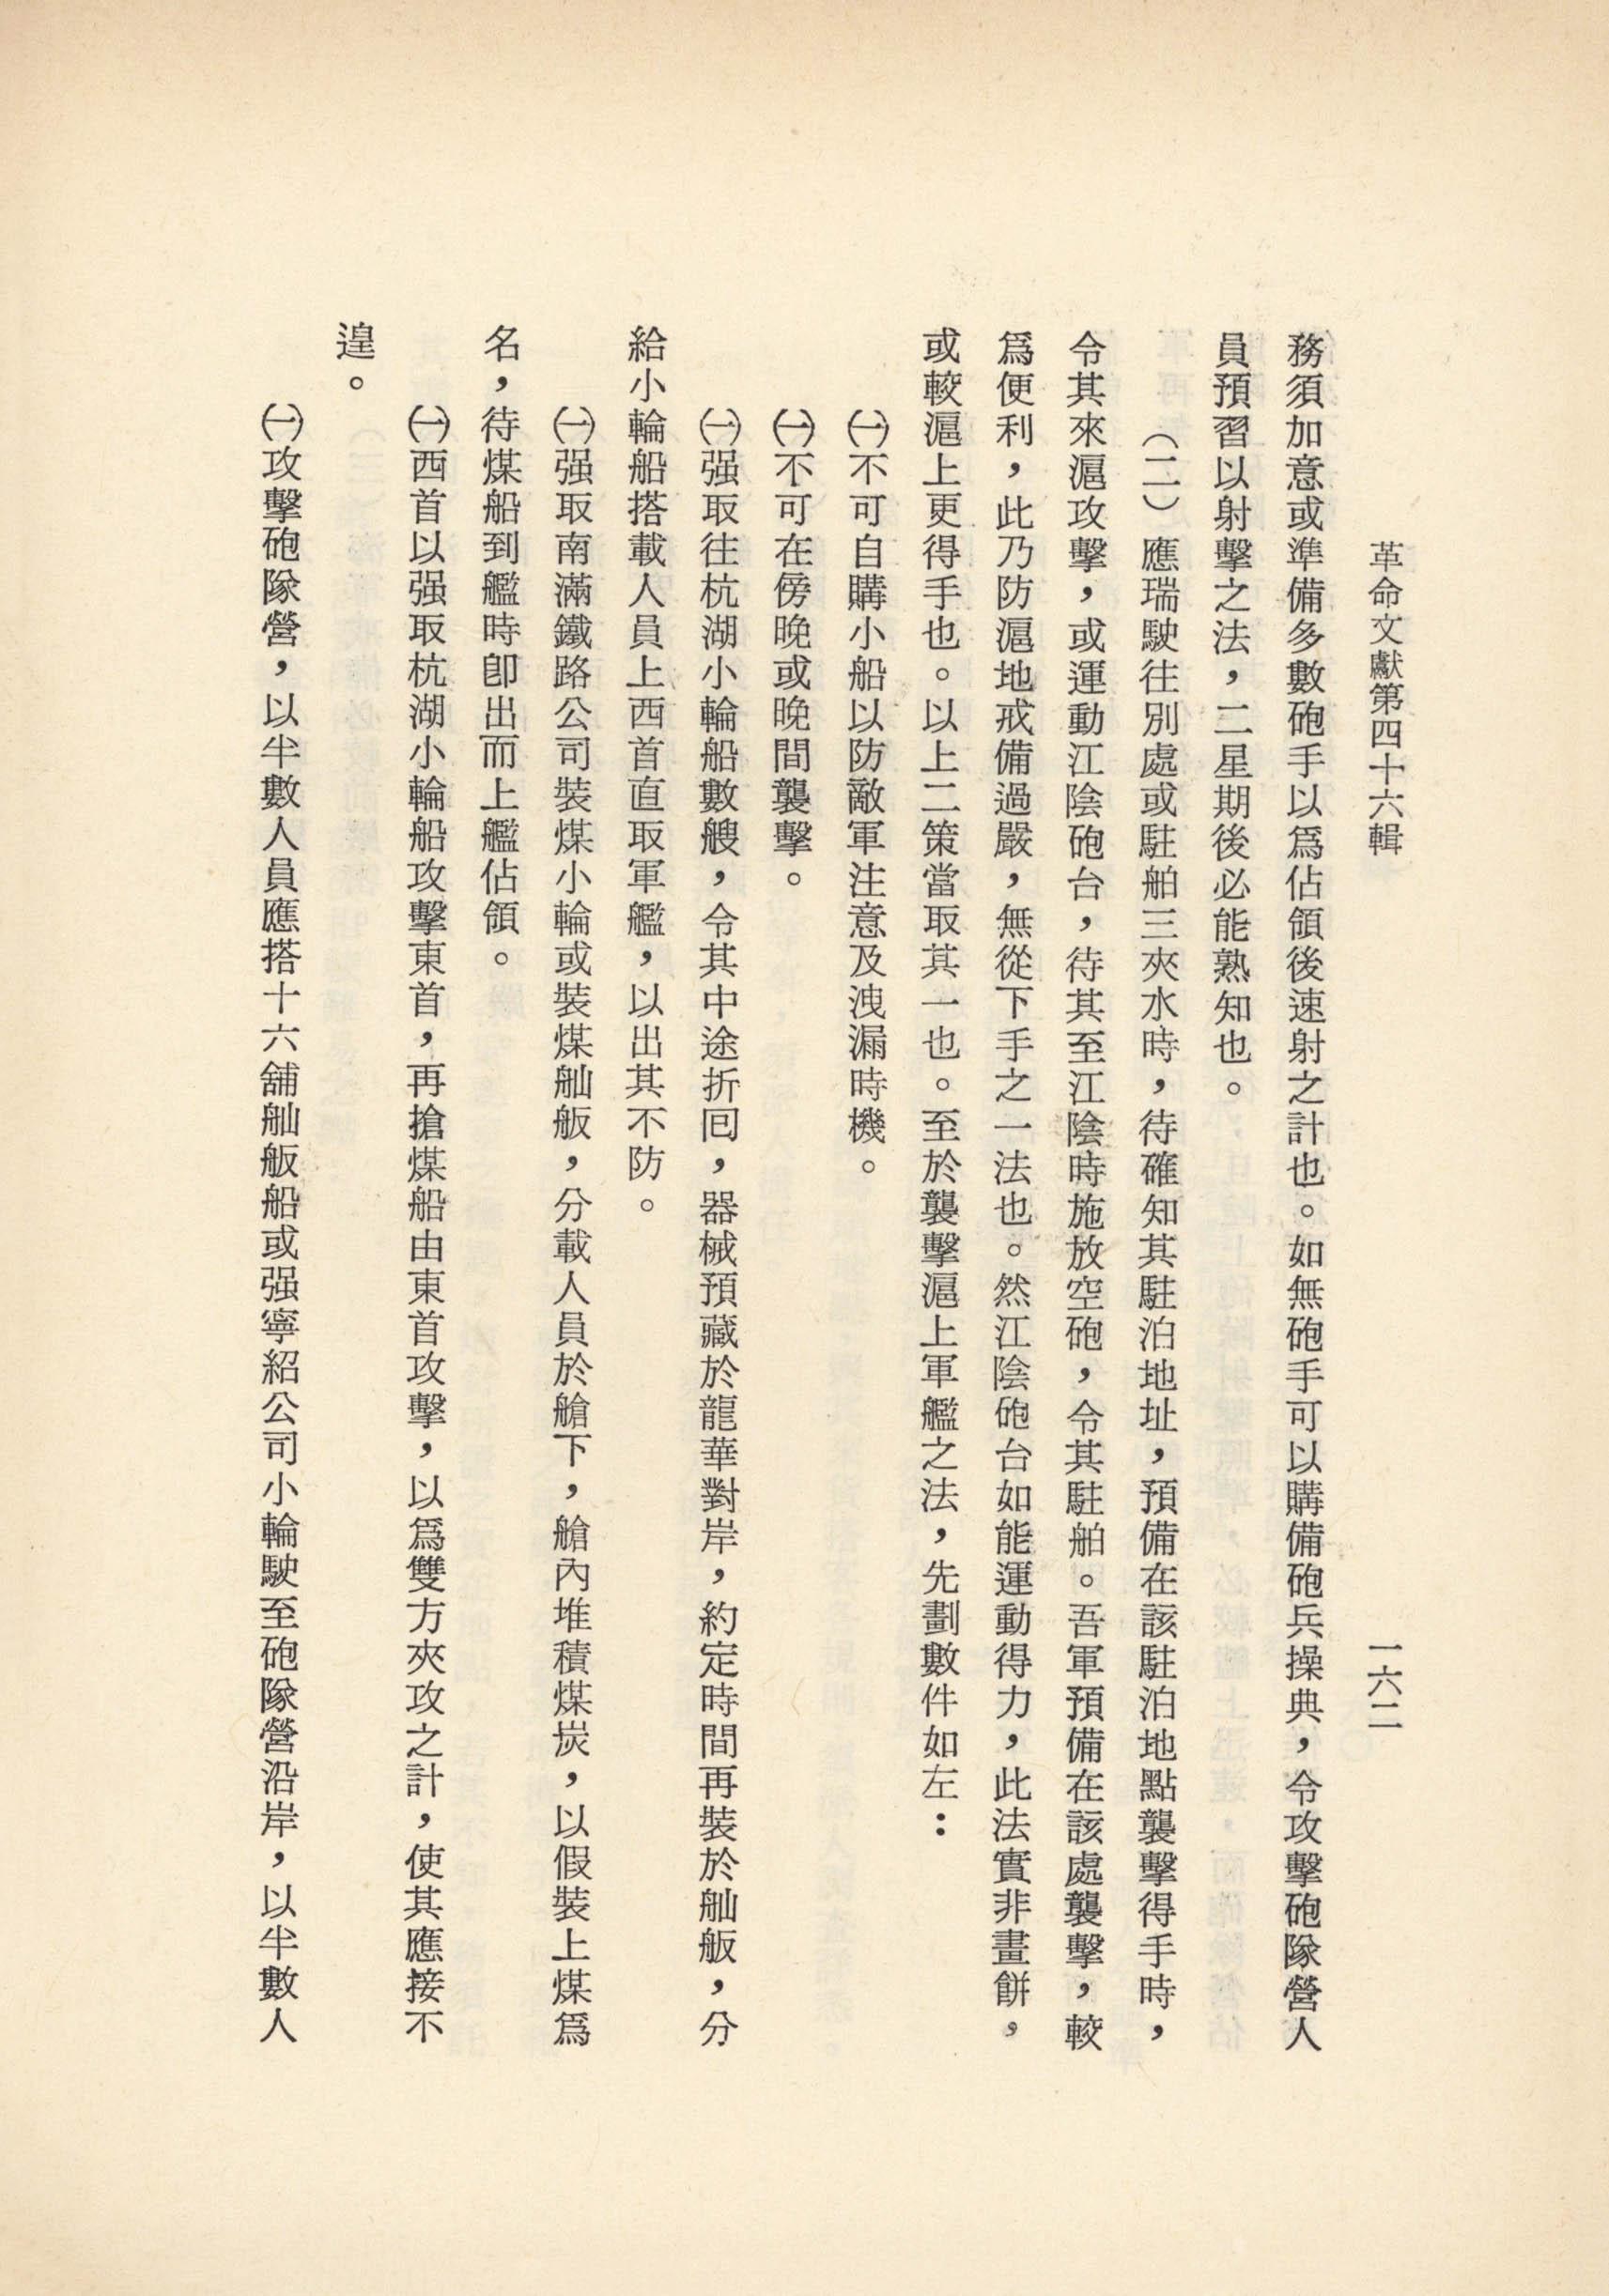 革命文獻第四十六輯
一六二
務須加意或準備多數砲手以爲佔領後速射之計也。如無砲手可以購備砲兵操典，令攻擊砲隊營人
員預習以射擊之法，二星期後必能熟知也。
（二）應瑞駛往別處或駐舶三夾水時，待確知其駐泊地址，預備在該駐泊地點襲擊得手時，
令其來滬攻擊，或運動江陰砲台，待其至江陰時施放空砲，令其駐舶。吾軍預備在該處襲擊，較
爲便利，此乃防滬地戒備過嚴，無從下手之一法也。然江陰砲台如能運動得力，此法實非畫餅，
或較滬上更得手也。以上二策當取其一也。至於襲擊滬上軍艦之法，先劃數件如左：
㈠不可自購小船以防敵軍注意及洩漏時機。
㈠不可在傍晚或晚間襲擊。
㈠强取往杭湖小輪船數艘，令其中途折囘，器械預藏於龍華對岸，約定時間再裝於舢舨，分
給小輪船搭載人員上西首直取軍艦，以出其不防。
㈠强取南滿鐵路公司裝煤小輪或裝煤舢舨，分載人員於艙下，艙內堆積煤炭，以假裝上煤爲
名，待煤船到艦時卽出而上艦佔領。
㈠西首以强取杭湖小輪船攻擊東首，再搶煤船由東首攻擊，以爲雙方夾攻之計，使其應接不
遑。
㈠攻擊砲隊營，以半數人員應搭十六舖舢舨船或强寧紹公司小輪駛至砲隊營沿岸，以半數人